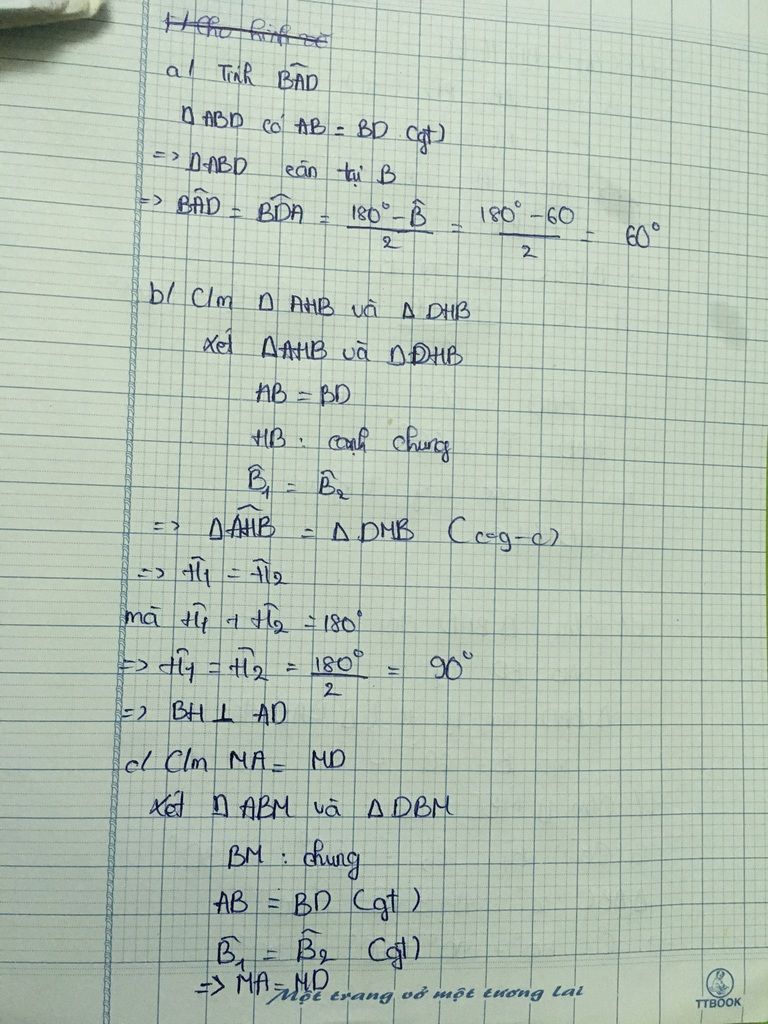 1) Cho hình vẽ
a/ Tính BÂD
Δ ABD có AB = BD (gt)
=> ΔABD cân tại B
=> BÂD = BD̂A = (180° - B̂)/2 = (180° - 60)/2 = 60°
b/ C/m Δ AHB và Δ DHB
Xét ΔAHB và ΔDHB
AB = BD
HB : cạnh chung
B̂1 = B̂2
=> ΔAĤB = Δ DMB (c-g-c)
=> Ĥ1 = Ĥ2
mà Ĥ1 + Ĥ2 = 180°
=> Ĥ1 = Ĥ2 = 180°/2 = 90°
=> BH ⊥ AD
c/ C/m MA = MD
Xét Δ ABM và Δ DBM
BM : chung
AB = BD (gt)
B̂1 = B̂2 (gt)
=> MA = MD
Một trang vở một tương lai
TTBOOK